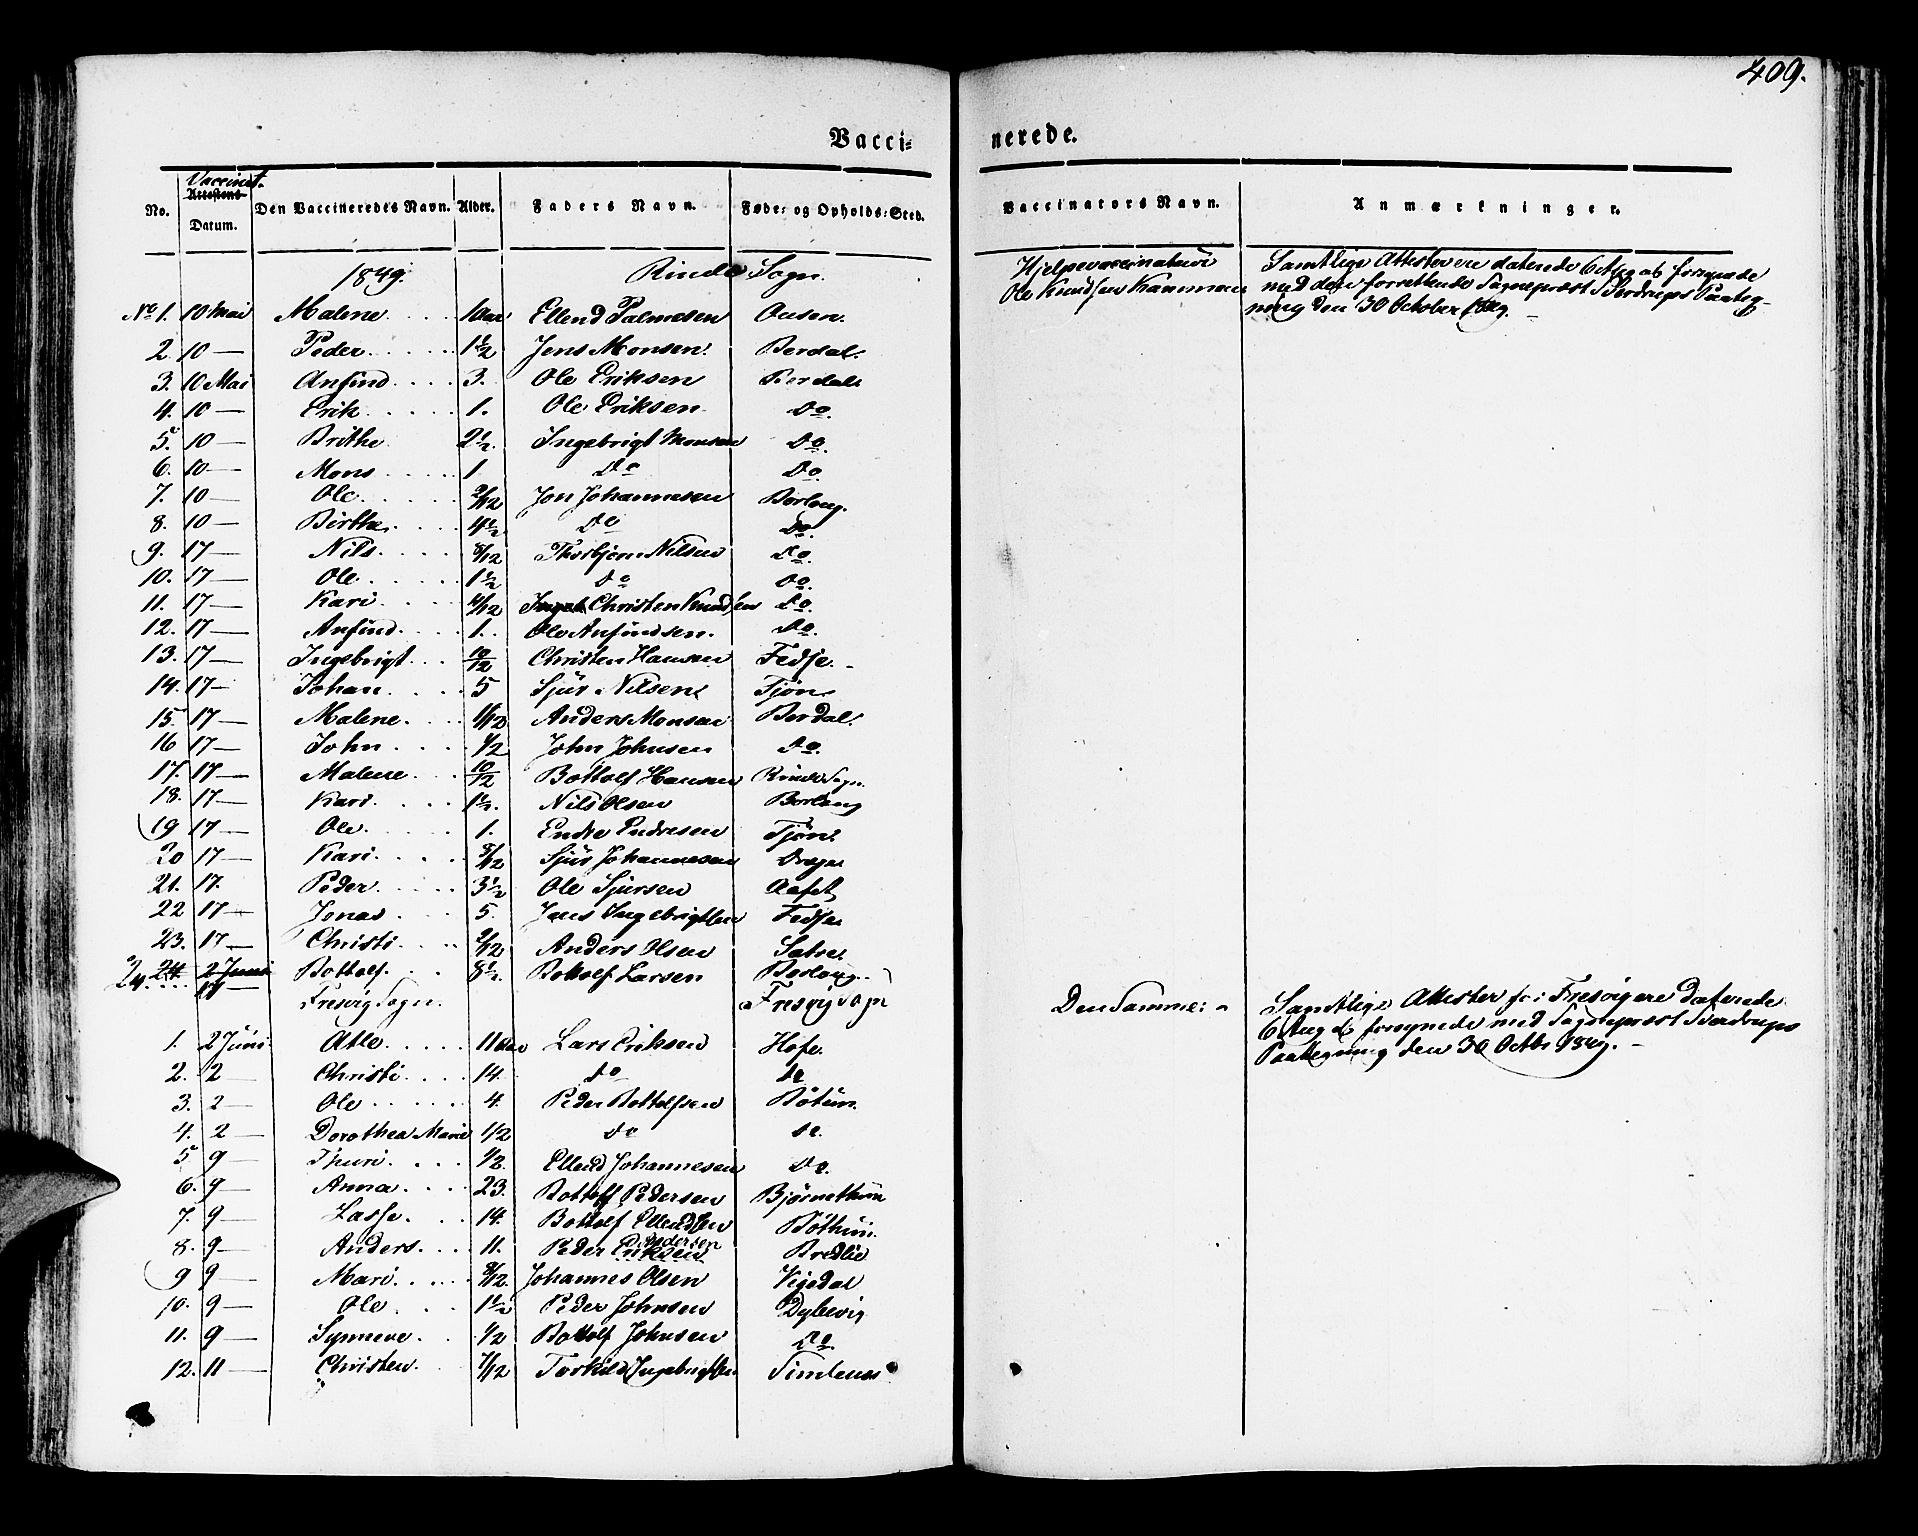 409.
Vacci= nerede.
No. Vaccinat. Attestens Datum. Den Vaccineredes Navn. Alder. Faders Navn. Føde= og Opholds=Sted. Vaccinators Navn. Anmærkninger.
1849. Rinde Sogn. Hjelpevaccinateur Samtlige Attester ere daterede 6 Aug og forsynede
Ole Knudsen med den forrettende Sognepræst Sverdrups Paateg-
ning den 30 October 1849. -
No 1. 10 Mai Malene. 1 Aar Ellend Palmesen Ousen.
2. 10 — Peder. 1 1/2 Jens Monsen. Berdal.
3. 10 Mai Anfind. 3. Ole Eriksen Berdal.
4. 10 — Erik. 1. Ole Eriksen. Do.
5. 10 — Brithe 2 1/2. Ingebrigt Monsen Do.
6. 10 — Mons 1. Do Do
7. 10 — Ole. 9/12 Jon Johannesen Borlaug.
8. 10 — Birthe. 4 1/2 Do Do.
9. 17 — Nils. 8/12 Thorbjørn Nilsen Do.
10. 17 — Ole. 1 1/2 Do Do.
11. 17 — Kari /12 Christen Knudsen Do.
12. 17 — Anfind. 1. Ole Anfindsen. Do.
13. 17 — Ingebrigt. 10/12 Christen Hansen Fedje. -
14. 17 — Johan. 5 Sjur Nilsen Tjøn
15. 17 — Malene. /12 Anders Monsen Berdal.
16 17 — John. 1/2 John Johnsen Do.
17. 17 — Malene. 10/12 Bottolf Hansen Rinde Sogn.
18. 17 — Kari. 1 1/2. Nils Olsen Borlaug
19 17 — Ole. 1. Endre Endresen Tjøn.
20 17 — Kari. /12 Sjur Johannesen
21. 17. Peder. 3 1/2 Ole Sjursen Aafet
22 17 — Jonas. 5. Jens Ingebrigtsen Fedje
23. 17 — Christi. 9/12 Anders Olsen Satre
24. 24 2 Juni 17 — Bottolf. 8 1/2. Bottolf Larsen Borlaug. -
Fresvig Sogn. Fresvig Sogn Den Samme: - Samtlige Attester for Fresvigere Daterede
6 Aug & forsynede med Sognepræst Sverdrups
Paategning den 30 Octbr 1849. -
1. 2 Juni. Atle. 11 Aar Lars Eriksen Hofe.
2. 2 — Christi. 14. Do Do
3. 2 — Ole 4. Peder Bottolfsen Bøtun.
4. 2 — Dorothea Marie 1/2 Do Do.
5 9 — Thuri. 1/2. Ellend Johannesen Do.
6. 9 — Anna. 23. Bottolf Pedersen Bjørnethun
7. 9 — Lasse. 14. Bottolf Ellendsen Bothun.
8. 9 — Anders. 11. Peder Eriksen Pedersen Bredlie
9 9 — Mari. 8/12. Johannes Olsen Vigedal
10. 9 — Ole 1 1/2 Peder Johnsen Dylevig
11. 9 — Synneve. 1/2 Bottolf Johnsen Do.
12. 11 — Christen. 7/12 Torkild Ingebrigtsen Simlenes